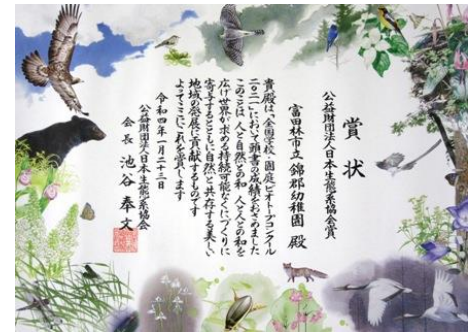 賞状
公益財団法人日本生態系協会賞
富田林市立 錦郡幼稚園 殿
貴殿は、「全国学校・園庭ビオトープコンクール
二〇二一」において頭書の成績をおさめました
このことは 人と自然との和 人と人との和を
広げ世界が求める持続可能なくにづくりに
寄与するとともに自然と共存する美しい
地域の発展に貢献するものです
よってここにこれを賞します
令和四年一月二十三日
公益財団法人日本生態系協会
会長 池谷奉文